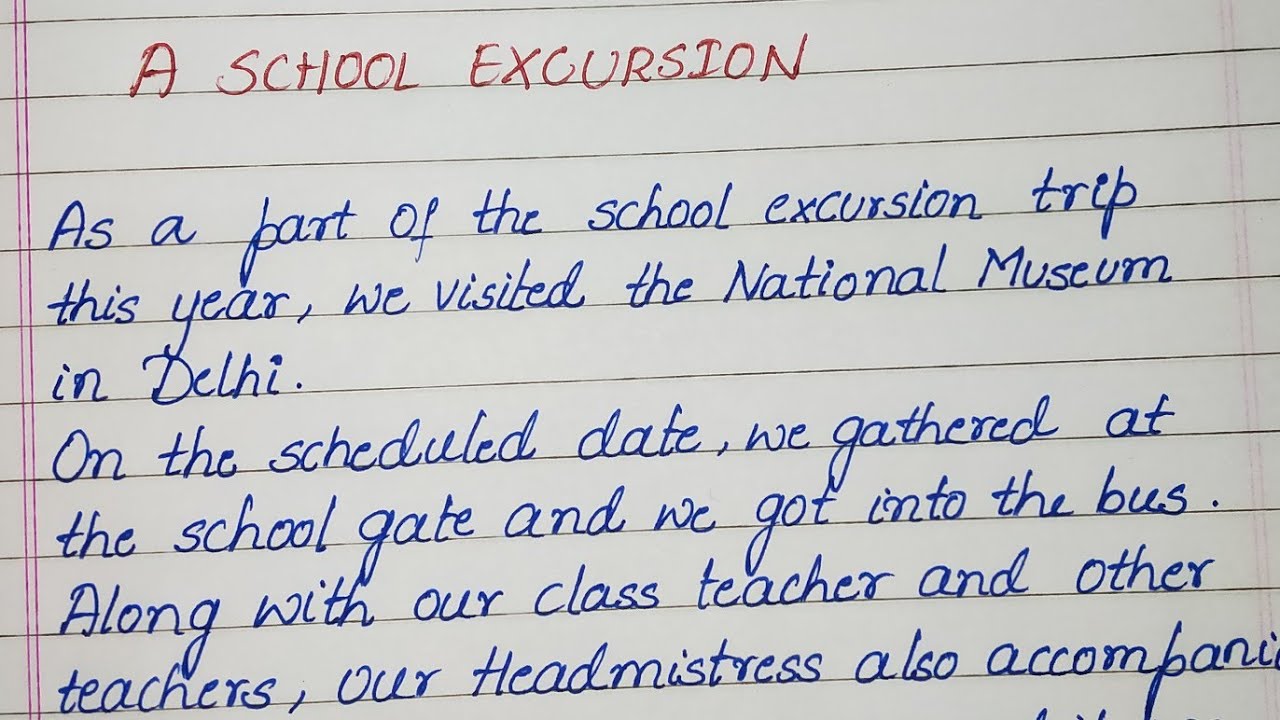 A SCHOOL EXCURSION
As a part of the school excursion trip
this year, we visited the National Museum
in Delhi.
On the scheduled date, we gathered at
the school gate and we got into the bus.
Along with our class teacher and other
teachers, our Headmistress also accompanie